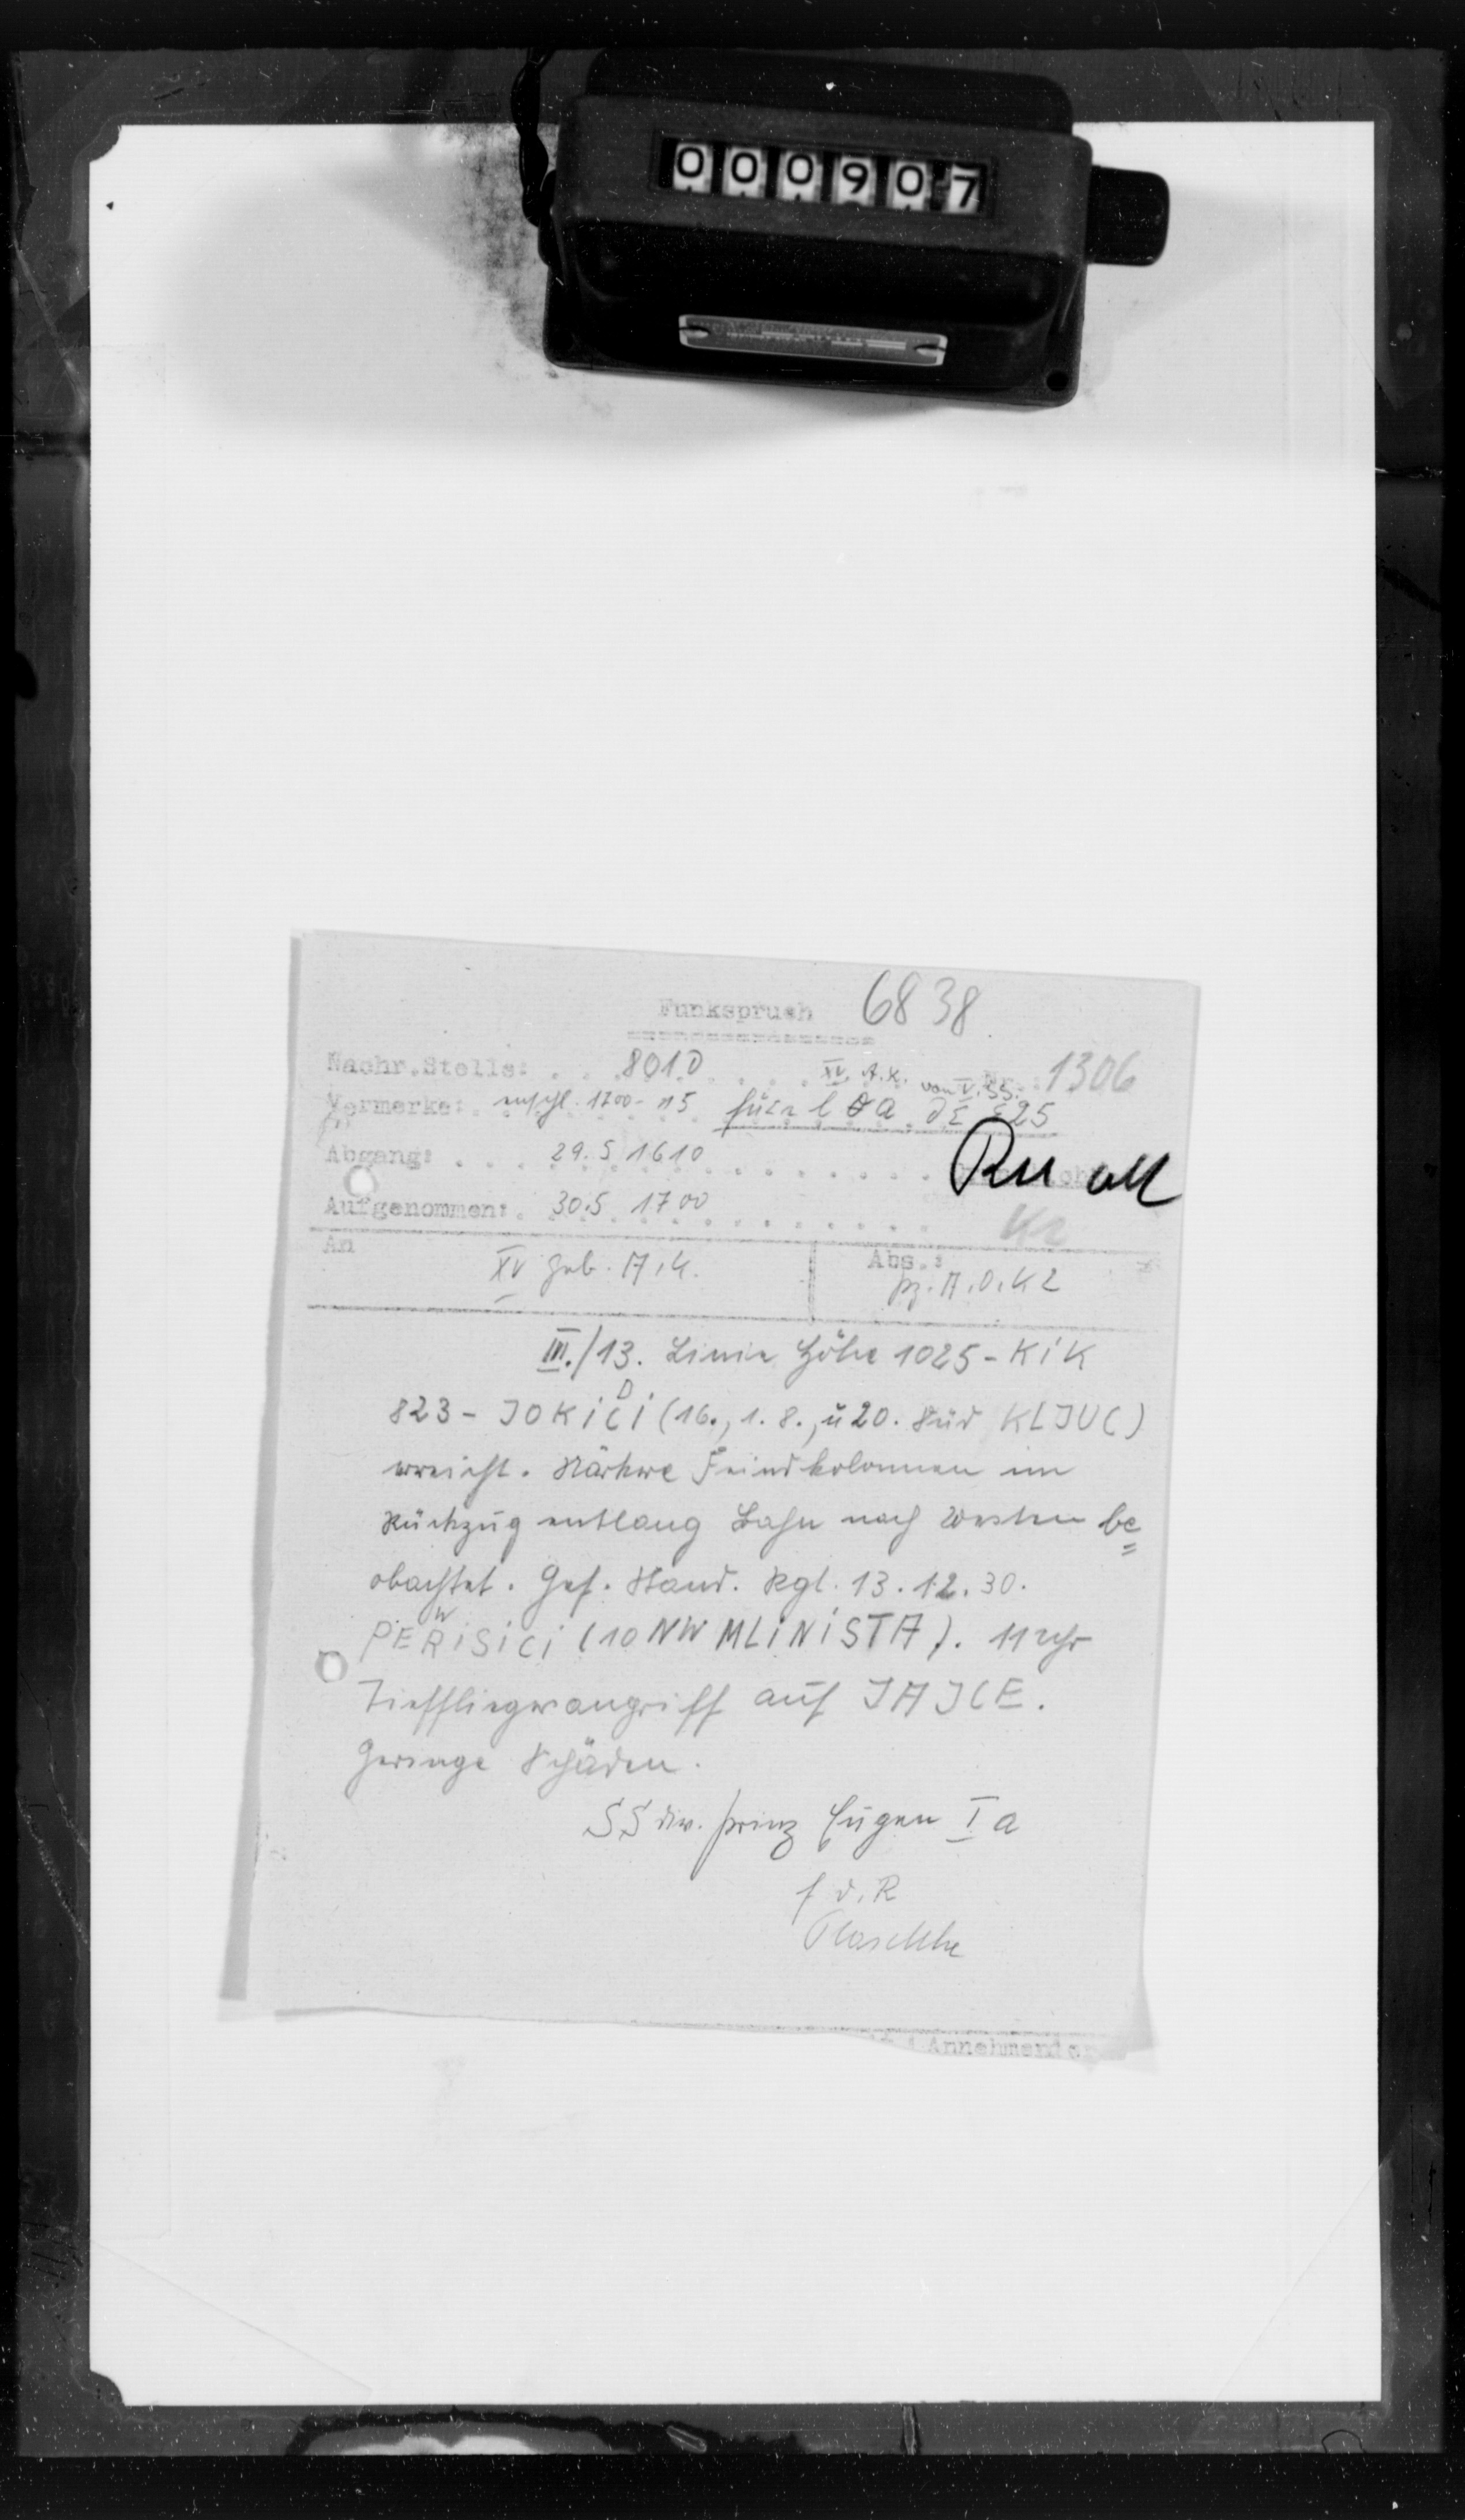 000907
Funkspruch 6838
Nachr.Stelle: 8010 XV. A.K. von V. SS. Nr.: 1306
Vermerke: entschl. 1700 - 115 für
Abgang: 29.5 1610
Aufgenommen: 30.5 1700
An XV Geb. A.K. Abs.: Pz. A.O.K 2
III./13. Linie Höhe 1025 - KiK
823 - JOKiCi (16., 1. 8., u 20. Süd KLJUC)
erreicht. Stärkere Feindkolonnen im
Rückzug entlang Bahn nach Westen be=
obachtet. Gef. Stand. Rgt. 13. 12.30.
PERiSiCi (10 NW MLiNiSTA). 11 Uhr
Tieffliegerangriff auf JAJCE.
Geringe Schäden.
SS Div. Prinz Eugen Ia
f d. R
Annehmender